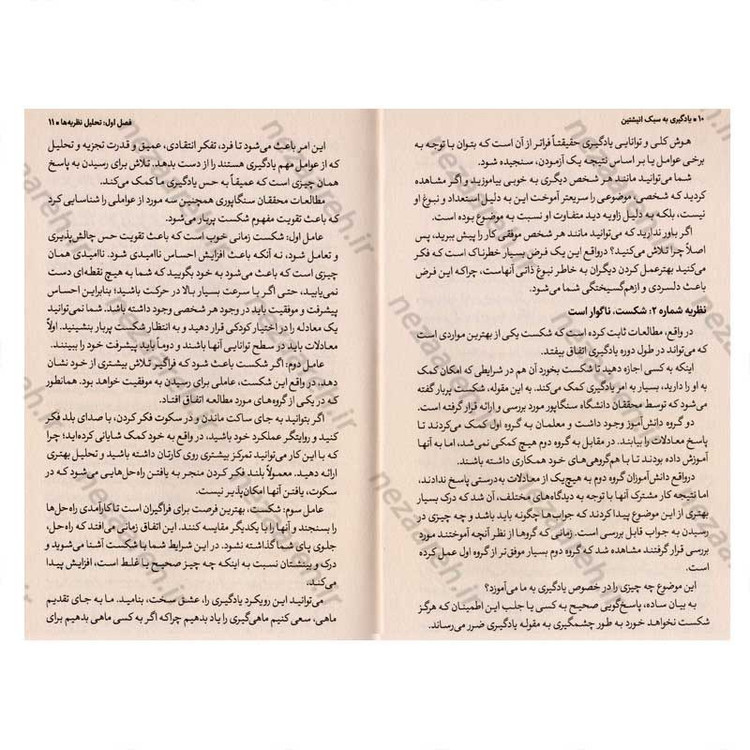 ۱۰ ■ یادگیری به سبک انیشتین
هوش کلی و توانایی یادگیری حقیقتاً فراتر از آن است که بتوان با توجه به
برخی عوامل یا بر اساس نتیجه یک آزمودن، سنجیده شود.
شما می‌توانید مانند هر شخص دیگری به خوبی بیاموزید و اگر مشاهده
کردید که شخصی، موضوعی را سریعتر آموخت این به دلیل استعداد و نبوغ او
نیست، بلکه به دلیل زاویه دید متفاوت او نسبت به موضوع بوده است.
اگر باور ندارید که می‌توانید مانند هر شخص موفقی کار را پیش ببرید، پس
اصلاً چرا تلاش می‌کنید؟ درواقع این یک فرض بسیار خطرناک است که فکر
می‌کنید بهترعمل کردن دیگران به خاطر نبوغ ذاتی آنهاست، چراکه این فرض
باعث دلسردی و ازهم‌گسیختگی شما می‌شود.
نظریه شماره ۲: شکست، ناگوار است
در واقع، مطالعات ثابت کرده است که شکست یکی از بهترین مواردی است
که می‌تواند در طول دوره یادگیری اتفاق بیفتد.
اینکه به کسی اجازه دهید تا شکست بخورد آن هم در شرایطی که امکان کمک
به او را دارید، بسیار به امر یادگیری کمک می‌کند. به این مقوله، شکست پربار گفته
می‌شود که توسط محققان دانشگاه سنگاپور مورد بررسی و ارائه قرار گرفته است.
دو گروه دانش‌آموز وجود داشت و معلمان به گروه اول کمک می‌کردند تا
پاسخ معادلات را بیابند. در مقابل به گروه دوم هیچ کمکی نمی‌شد، اما به آنها
آموزش داده بودند تا با هم‌گروهی‌های خود همکاری داشته باشند.
درواقع دانش‌آموزان گروه دوم به هیچ‌یک از معادلات به‌درستی پاسخ ندادند،
اما نتیجه کار مشترک آنها با توجه به دیدگاه‌های مختلف، آن شد که درک بسیار
بهتری از این موضوع پیدا کردند که جواب‌ها چگونه باید باشد و چه چیزی در
رسیدن به جواب قابل بررسی است. زمانی که گروه‌ها از نظر آنچه آموختند مورد
بررسی قرار گرفتند مشاهده شد که گروه دوم بسیار موفق‌تر از گروه اول عمل کرده
است.
این موضوع چه چیزی را در خصوص یادگیری به ما می‌آموزد؟
به بیان ساده، پاسخ‌گویی صحیح به کسی یا جلب این اطمینان که هرگز
شکست نخواهد خورد به طور چشمگیری به مقوله یادگیری ضرر می‌رساند.
فصل اول: تحلیل نظریه‌ها ■ ۱۱
این امر باعث می‌شود تا فرد، تفکر انتقادی، عمیق و قدرت تجزیه و تحلیل
که از عوامل مهم یادگیری هستند را از دست بدهد. تلاش برای رسیدن به پاسخ
همان چیزی است که عمیقاً به حس یادگیری ما کمک می‌کند.
مطالعات محققان سنگاپوری همچنین سه مورد از عواملی را شناسایی کرد
که باعث تقویت مفهوم شکست پربار می‌شود.
عامل اول: شکست زمانی خوب است که باعث تقویت حس چالش‌پذیری
و تعامل شود، نه آنکه باعث افزایش احساس ناامیدی شود. ناامیدی همان
چیزی است که باعث می‌شود به خود بگویید که شما به هیچ نقطه‌ای دست
نمی‌یابید، حتی اگر با سرعت بسیار بالا در حرکت باشید؛ بنابراین احساس
پیشرفت و موفقیت باید در وجود هر شخصی وجود داشته باشد. شما نمی‌توانید
یک معادله را در اختیار کودکی قرار دهید و به انتظار شکست پربار بنشینید. اولاً
معادلات باید در سطح توانایی آنها باشند و دوماً باید پیشرفت خود را ببینند.
عامل دوم: اگر شکست باعث شود که فراگیر تلاش بیشتری از خود نشان
دهد، در واقع این شکست، عاملی برای رسیدن به موفقیت خواهد بود. همانطور
که در یکی از گروه‌های مورد مطالعه اتفاق افتاد.
اگر بتوانید به جای ساکت ماندن و در سکوت فکر کردن، با صدای بلد فکر
کنید و روایتگر عملکرد خود باشید، در واقع به خود کمک شایانی کرده‌اید؛ چرا
که با این کار می‌توانید تمرکز بیشتری روی کارتان داشته باشید و تحلیل بهتری
ارائه دهید. معمولاً بلند فکر کردن منجر به یافتن راه‌حل‌هایی می‌شود که در
سکوت، یافتن آنها امکان‌پذیر نیست.
عامل سوم: شکست، بهترین فرصت برای فراگیران است تا کارآمدی راه‌حل‌ها
را بسنجند و آنها را با یکدیگر مقایسه کنند. این اتفاق زمانی می‌افتد که راه‌حل،
جلوی پای شما گذاشته نشود. در این شرایط شما با شکست آشنا می‌شوید و
درک و بینشتان نسبت به اینکه چه چیز صحیح یا غلط است، افزایش پیدا
می‌کند.
می‌توانید این رویکرد یادگیری را، عشق سخت، بنامید. ما به جای تقدیم
ماهی، سعی کنیم ماهی‌گیری را یاد بدهیم چراکه اگر به کسی ماهی بدهیم برای
nezaareh.ir